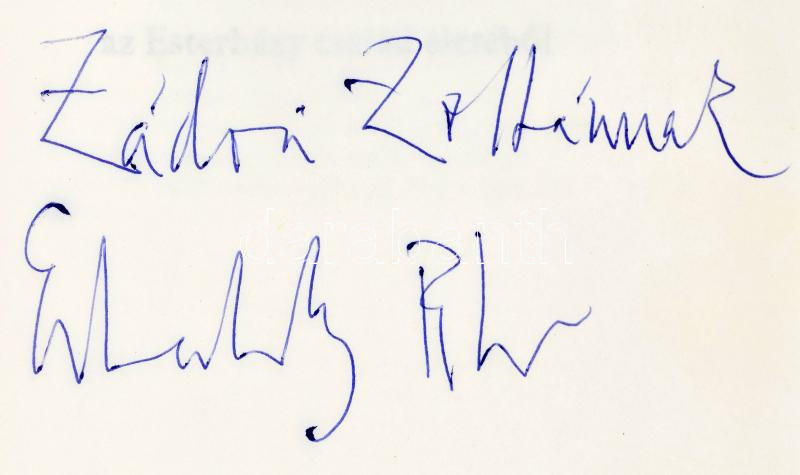 az Esterházy család életéből
Zádori Zoltánnak
Esterházy Péter
darabanth